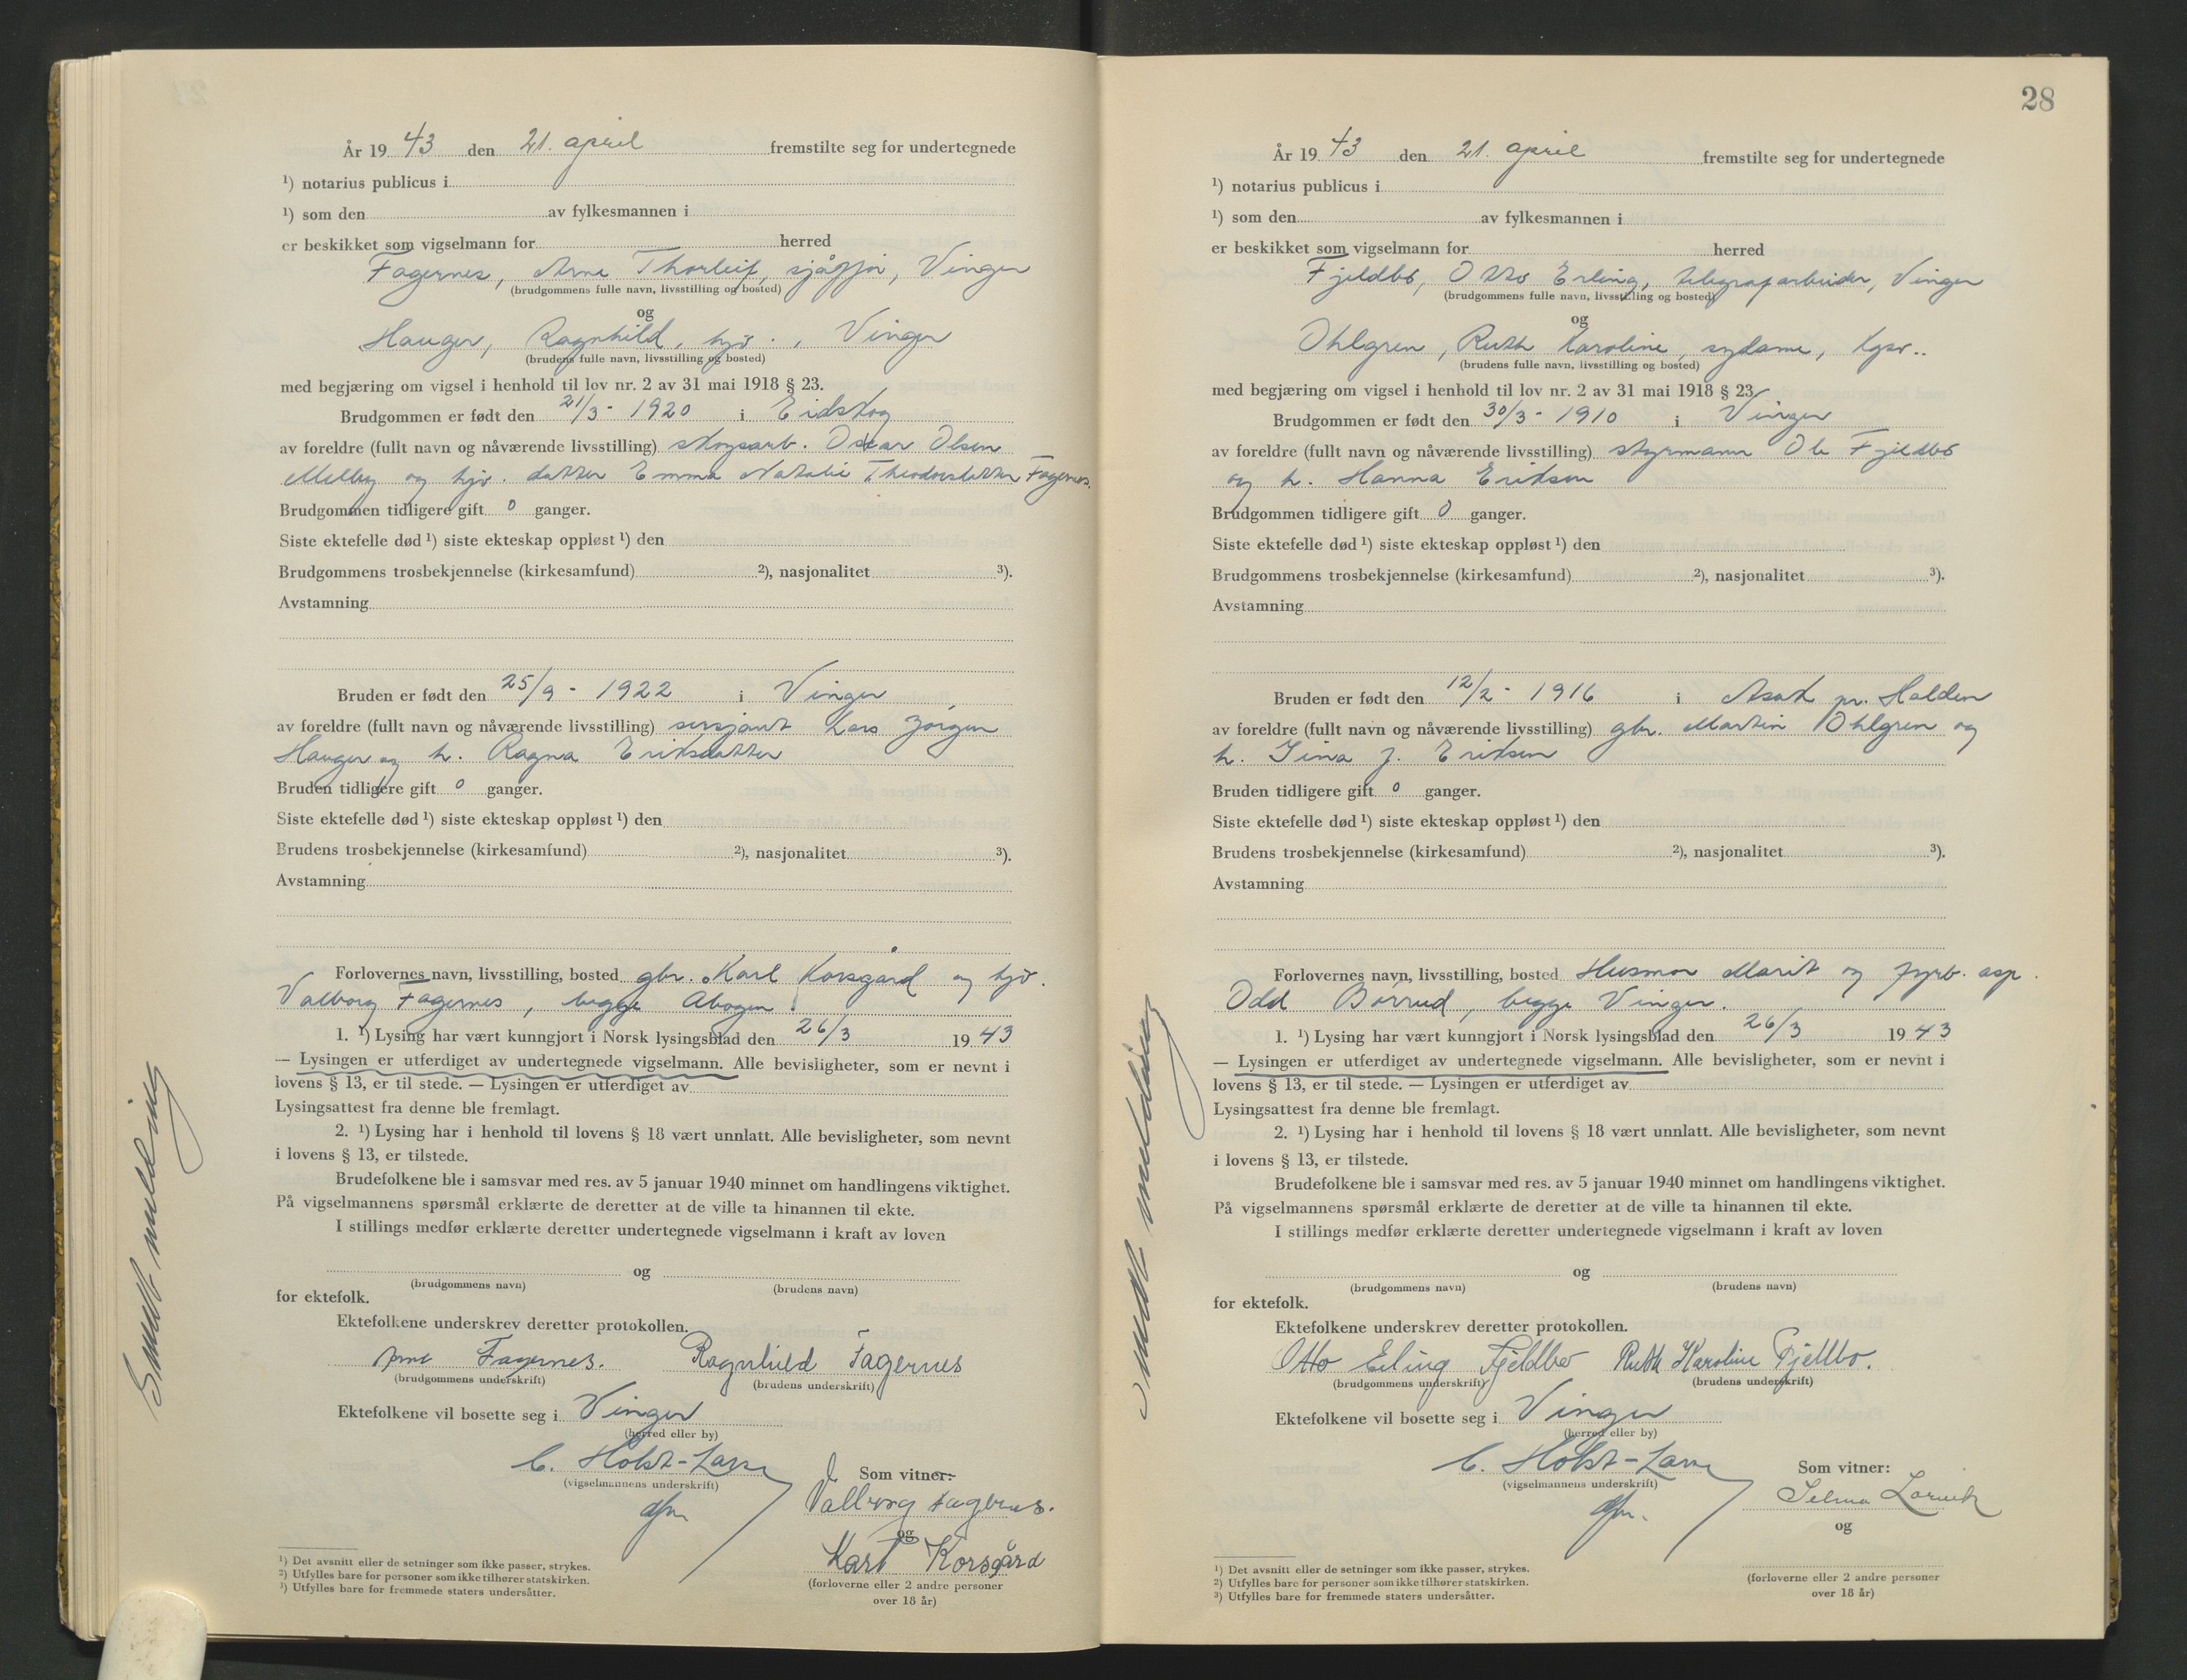 År 19 43 den 21. april fremstilte seg for undertegnede
¹) notarius publicus i
¹) som den av fylkesmannen i
er beskikket som vigselmann for herred
Fagernes, Arne Thorleif, sjåfør, Vinger
(brudgommens fulle navn, livsstilling og bosted)
og
Hauger, Ragnhild, hjv., Vinger
(brudens fulle navn, livsstilling og bosted)
med begjæring om vigsel i henhold til lov nr. 2 av 31 mai 1918 § 23.
Brudgommen er født den 21/3 - 1920 i Eidskog
av foreldre (fullt navn og nåværende livsstilling) skogsarb. Oskar Olsen
Melby og hjv. datter Emma Natalie Theodorsdatter Fagernes.
Brudgommen tidligere gift 0 ganger.
Siste ektefelle død ¹) siste ekteskap oppløst ¹) den
Brudgommens trosbekjennelse (kirkesamfund) ²), nasjonalitet ³).
Avstamning
Bruden er født den 25/9 - 1922 i Vinger
av foreldre (fullt navn og nåværende livsstilling) sersjant Lars Jørgen
Hauger og h. Ragna Eriksdatter
Bruden tidligere gift 0 ganger.
Siste ektefelle død ¹) siste ekteskap oppløst ¹) den
Brudens trosbekjennelse (kirkesamfund) ²), nasjonalitet ³).
Avstamning
Forlovernes navn, livsstilling, bosted gbr. Karl Korsgård og hjv.
Valborg Fagernes, begge Åbogen
1. ¹) Lysing har vært kunngjort i Norsk lysingsblad den 26/3 19 43
— Lysingen er utferdiget av undertegnede vigselmann. Alle bevisligheter, som er nevnt i
lovens § 13, er til stede. — Lysingen er utferdiget av
Lysingsattest fra denne ble fremlagt.
2. ¹) Lysing har i henhold til lovens § 18 vært unnlatt. Alle bevisligheter, som nevnt
i lovens § 13, er tilstede.
Brudefolkene ble i samsvar med res. av 5 januar 1940 minnet om handlingens viktighet.
På vigselmannens spørsmål erklærte de deretter at de ville ta hinannen til ekte.
I stillings medfør erklærte deretter undertegnede vigselmann i kraft av loven
og
(brudgommens navn) (brudens navn)
for ektefolk.
Ektefolkene underskrev deretter protokollen.
Arne Fagernes. Ragnhild Fagernes
(brudgommens underskrift) (brudens underskrift)
Ektefolkene vil bosette seg i Vinger
(herred eller by)
C. Holst-Larsen
(vigselmannens underskrift)
Som vitner:
Valborg Fagernes.
og
Karl Korsgård
(forloverne eller 2 andre personer
over 18 år)
¹) Det avsnitt eller de setninger som ikke passer, strykes.
²) Utfylles bare for personer som ikke tilhører statskirken.
³) Utfylles bare for fremmede staters undersåtter.
Sendt melding
28
År 19 43 den 21. april fremstilte seg for undertegnede
¹) notarius publicus i
¹) som den av fylkesmannen i
er beskikket som vigselmann for herred
Fjeldbo, Otto Erling, telegrafarbeider, Vinger
(brudgommens fulle navn, livsstilling og bosted)
og
Ohlgren, Ruth Karoline, sydame, Kgsv..
(brudens fulle navn, livsstilling og bosted)
med begjæring om vigsel i henhold til lov nr. 2 av 31 mai 1918 § 23
Brudgommen er født den 30/3 - 1910 i Vinger
av foreldre (fullt navn og nåværende livsstilling) styrmann Ole Fjeldbo
og h. Hanna Eriksen
Brudgommen tidligere gift 0 ganger.
Siste ektefelle død ¹) siste ekteskap oppløst ¹) den
Brudgommens trosbekjennelse (kirkesamfund) ²), nasjonalitet ³).
Avstamning
Bruden er født den 12/2 - 1916 i Asak pr. Halden
av foreldre (fullt navn og nåværende livsstilling) gbr. Martin Ohlgren og
h. Jina J. Eriksen
Bruden tidligere gift 0 ganger.
Siste ektefelle død ¹) siste ekteskap oppløst ¹) den
Brudens trosbekjennelse (kirkesamfund) ²), nasjonalitet ³).
Avstamning
Forlovernes navn, livsstilling, bosted Husmor Marit og fyrb. asp.
Odd Børrud, begge Vinger.
1. ¹) Lysing har vært kunngjort i Norsk lysingsblad den 26/3 19 43
— Lysingen er utferdiget av undertegnede vigselmann. Alle bevisligheter, som er nevnt i
lovens § 13, er til stede. — Lysingen er utferdiget av
Lysingsattest fra denne ble fremlagt.
2. ¹) Lysing har i henhold til lovens § 18 vært unnlatt. Alle bevisligheter, som nevnt
i lovens § 13, er tilstede.
Brudefolkene ble i samsvar med res. av 5 januar 1940 minnet om handlingens viktighet.
På vigselmannens spørsmål erklærte de deretter at de ville ta hinannen til ekte.
I stillings medfør erklærte deretter undertegnede vigselmann i kraft av loven
og
(brudgommens navn) (brudens navn)
for ektefolk.
Ektefolkene underskrev deretter protokollen.
Otto Erling Fjeldbo Ruth Karoline Fjeldbo.
(brudgommens underskrift) (brudens underskrift)
Ektefolkene vil bosette seg i Vinger
(herred eller by)
C. Holst-Larsen
(vigselmannens underskrift)
Som vitner:
Selma
og
(forloverne eller 2 andre personer
over 18 år)
¹) Det avsnitt eller de setninger som ikke passer, strykes.
²) Utfylles bare for personer som ikke tilhører statskirken.
³) Utfylles bare for fremmede staters undersåtter.
Sendt melding